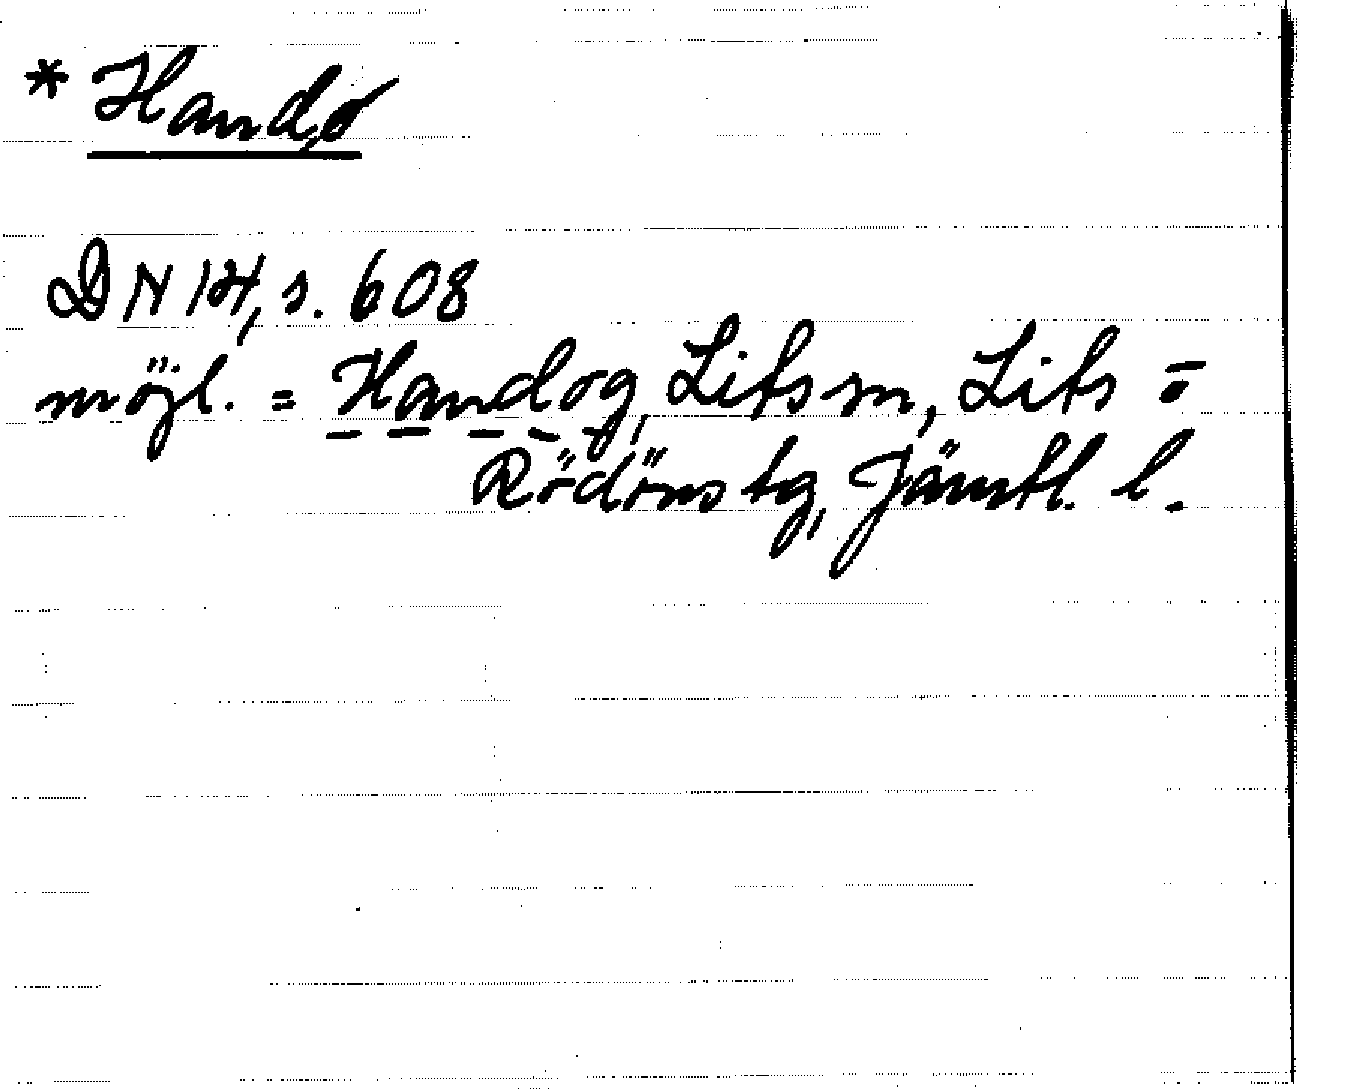 * Handø
DN 14, s. 608
möjl. = Handog, Lits sn, Lits o
Rödöns tg, Jämtl. l.